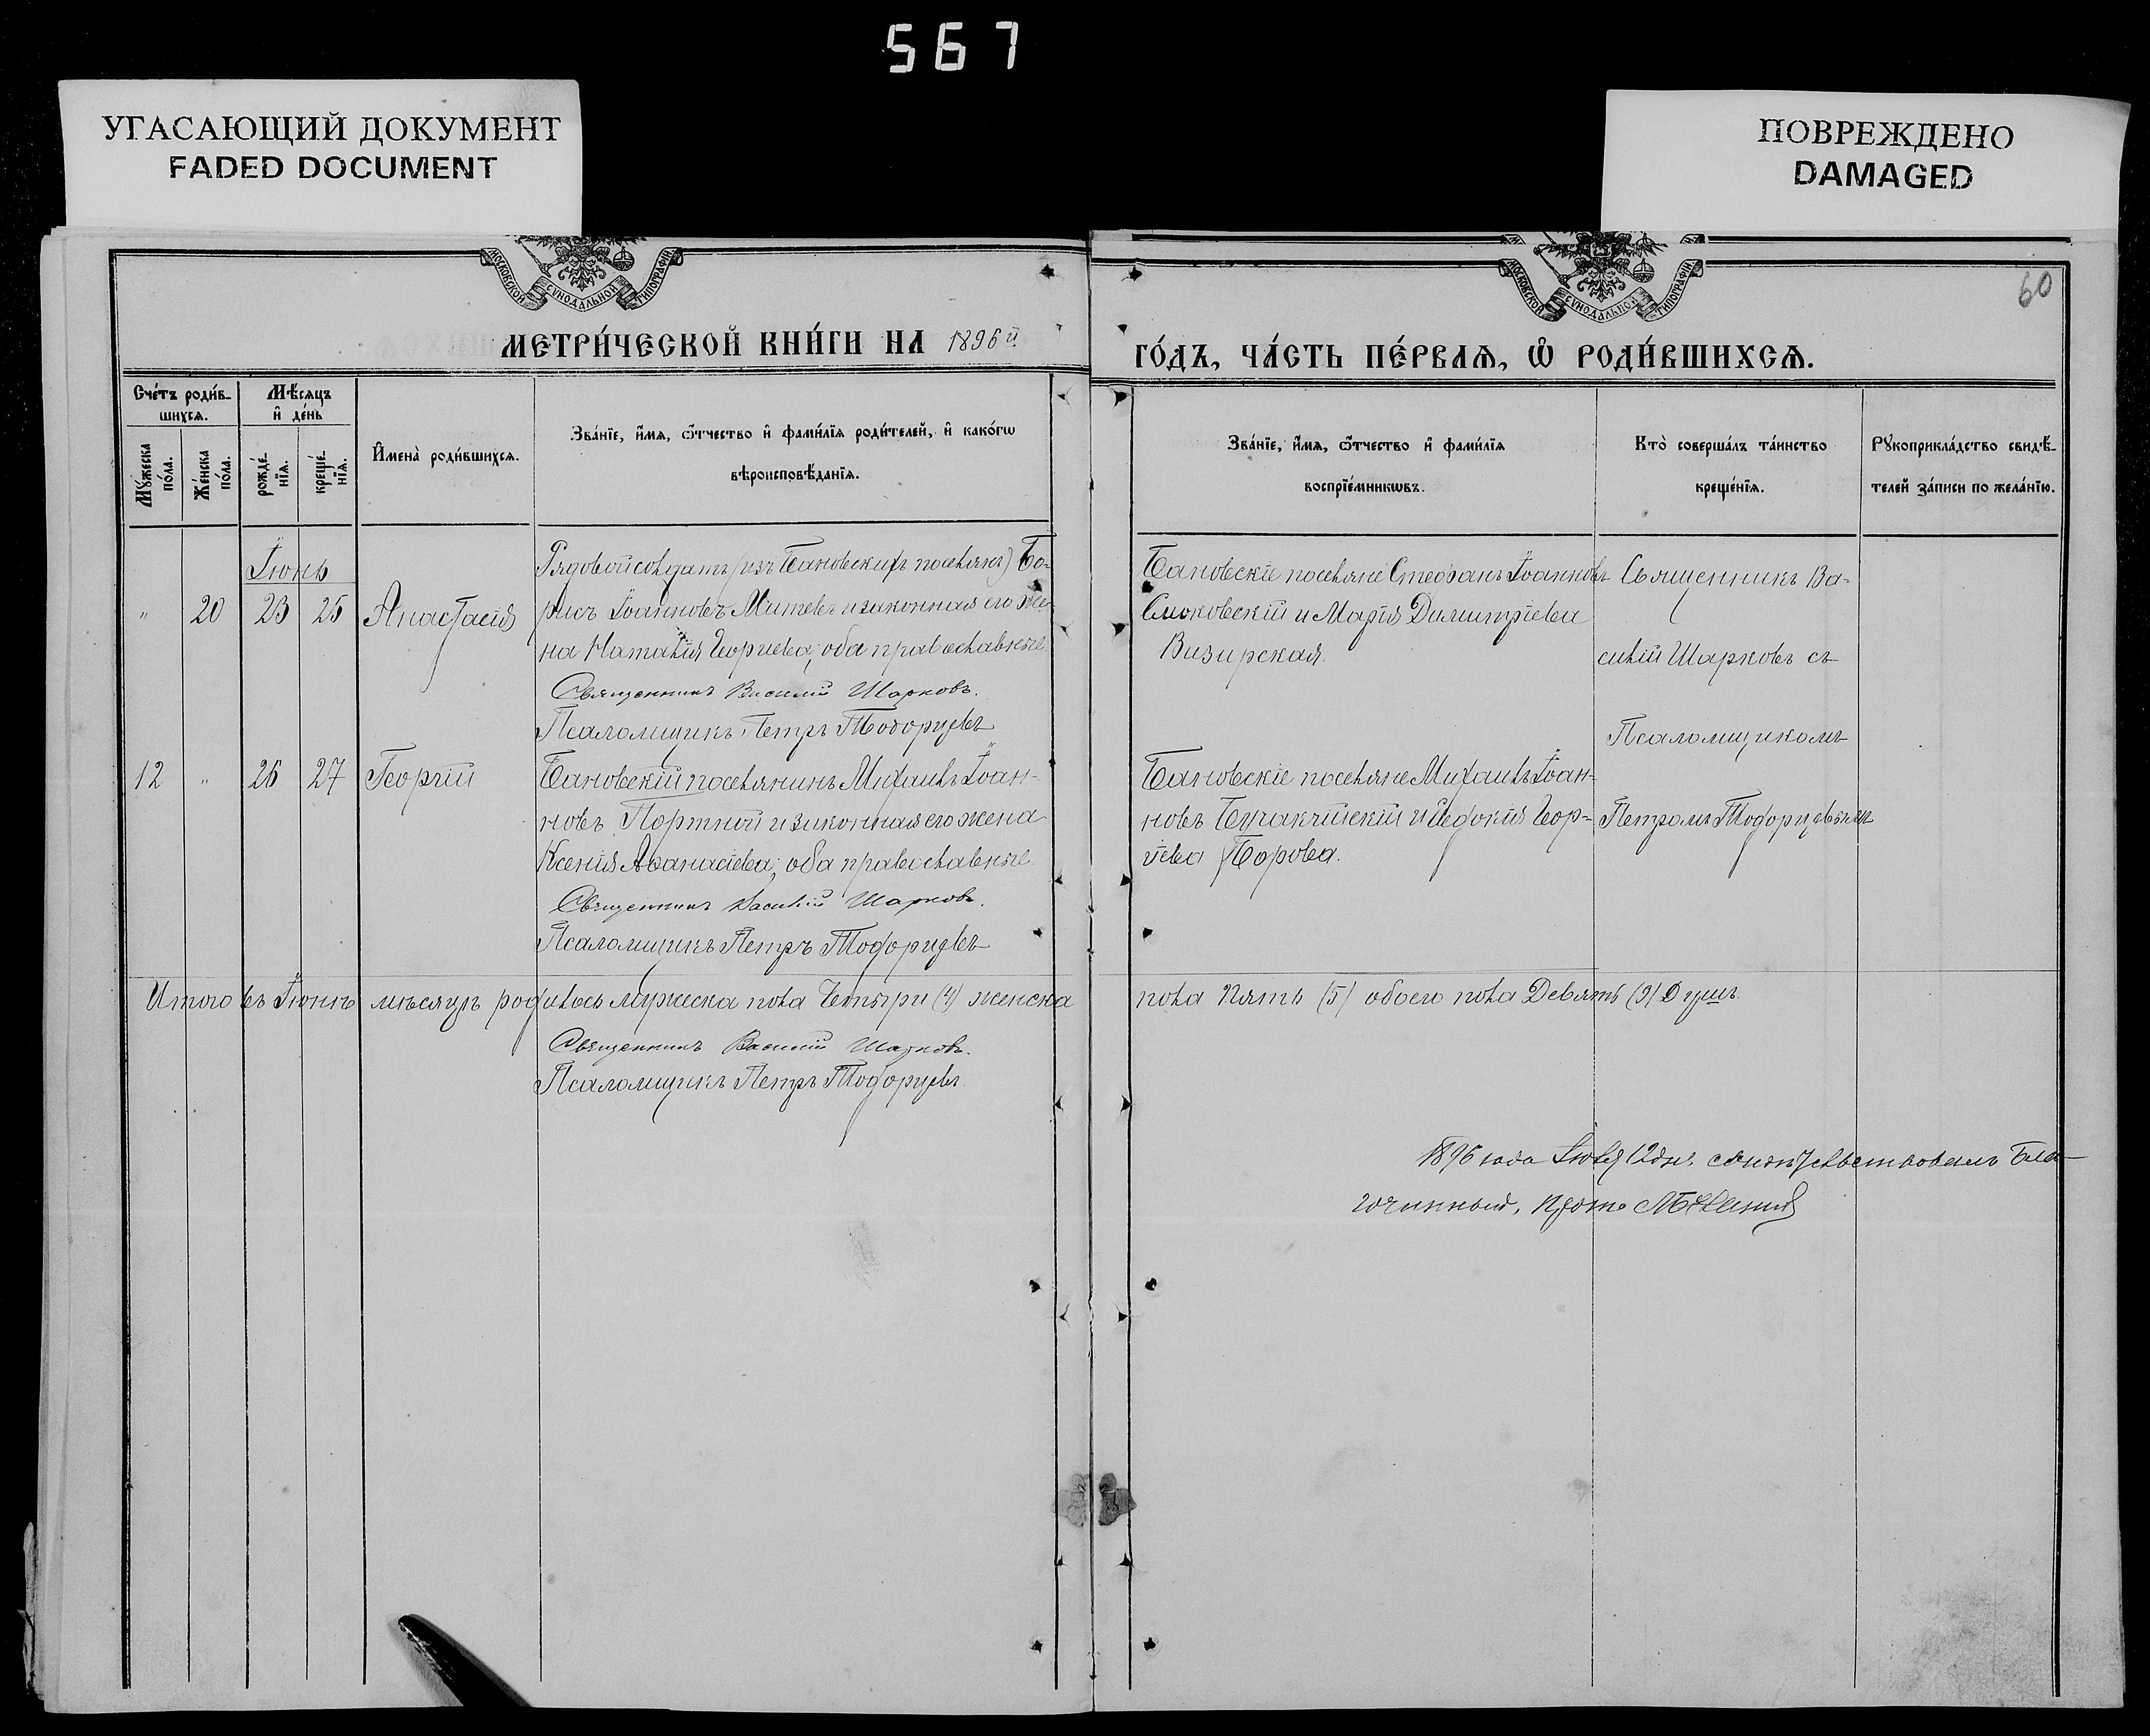 567
УГАСАЮЩИЙ ДОКУМЕНТ
FADED DOCUMENT
ПОВРЕЖДЕНО
DAMAGED
МОСКОВСКОЙ СУНОДАЛЬНОЙ ТИПОГРАФІИ
МОСКОВСКОЙ СУНОДАЛЬНОЙ ТИПОГРАФІИ
60
МЕТРИ́ЧЕСКОЙ КНИ́ГИ НА 1896й
ГО́ДЪ, ЧА́СТЬ ПЕ́РВАЯ, Ѡ҆ РОДИ́ВШИХСЯ.
Сче́тъ роди́в-
шихся.
Мꙋ́жеска по́ла.
Же́нска по́ла.
Мѣ́сяцъ
и҆ де́нь
рожде́-нїя.
креще́-нїя.
И҆мена̀ роди́вшихся.
Зва́нїе, и҆́мя, ѻ҆́тчество и҆ фами́лїя роди́телей, и҆ како́гѡ
вѣроисповѣ́данїя.
Зва́нїе, и҆́мя, ѻ҆́тчество и҆ фами́лїя
воспрїе́мникѡвъ.
Кто̀ соверша́лъ та́инство
креще́нїя.
Рꙋкоприкла́дство свидѣ́-
телей за́писи по жела́нїю.
Іюнь
" 20 23 25 Анастасія
Рядовой солдатъ (изъ Бановскихъ поселянъ) Бо-
рисъ Іоанновъ Митевъ и законная его же-
на Наталія Георгиева; оба православные.
Священникъ Василій Шарковъ.
Псаломщикъ Петръ Тодорцевъ
Бановскіе поселяне Стефанъ Іоанновъ
Смоковскій и Марія Димитріева
Визирская.
Священникъ Ва-
силій Шарковъ съ
Псаломщикомъ
Петромъ Тодорцевымъ
12 " 26 27 Георгій
Бановскій поселянинъ Михаилъ Іоан-
новъ Портной и законная его жена
Ксенія Аѳанасіева; оба православные.
Священникъ Василій Шарковъ.
Псаломщикъ Петръ Тодорцевъ
Бановскіе поселяне Михаилъ Іоан-
новъ и Евдокія Геор-
гіева Борова.
Итого въ Іюнѣ мѣсяцѣ родилось мужеска пола Четыри (4) женска
пола Пять (5) обоего пола Девять (9) Душъ.
Священникъ Василій Шарковъ.
Псаломщикъ Петръ Тодорцевъ.
1896 года Іюля 12 дня Бла-
гочинный, Прото